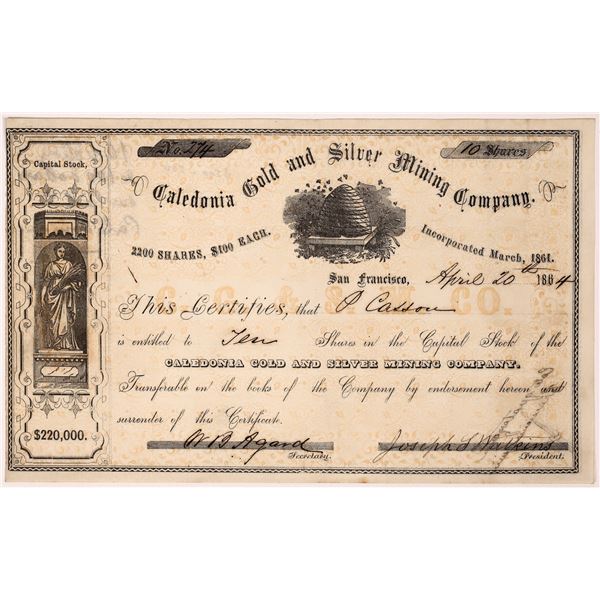 No. 274
10 Shares
Capital Stock,
Caledonia Gold and Silver Mining Company.
2200 SHARES, $100 EACH.
Incorporated March, 1861.
San Francisco, April 20th 1864
This Certifies, that P Casson
is entitled to Ten Shares in the Capital Stock of the
CALEDONIA GOLD AND SILVER MINING COMPANY.
Transferable on the books of the Company by endorsement hereon and
surrender of this Certificate.
$220,000.
W B Agard
Joseph S Watkins
Secretary.
President.